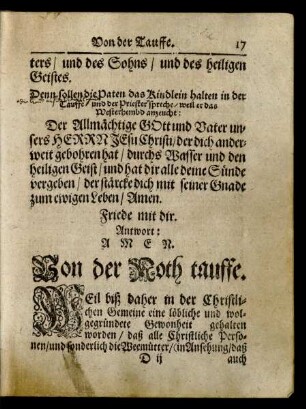 Von der Tauffe. 17
ters / und des Sohns / und des heiligen
Geistes.
Denn sollen die Paten das Kindlein halten in der
Tauffe / und der Priester spreche / weil er das
Westerhembd anzeucht:
Der Allmächtige GOtt und Vater un-
sers HERRN JEsu Christi / der dich ander-
weit gebohren hat / durchs Wasser und den
heiligen Geist / und hat dir alle deine Sünde
vergeben / der stärcke dich mit seiner Gnade
zum ewigen Leben / Amen.
Friede mit dir.
Antwort:
A M E N.
Von der Noth tauffe.
WEil biß daher in der Christli-
chen Gemeine eine löbliche und wol-
gegründete Gewonheit gehalten
worden / daß alle Christliche Perso-
nen / und sonderlich die Weemütter / (in Ansehung / daß
D ij auch